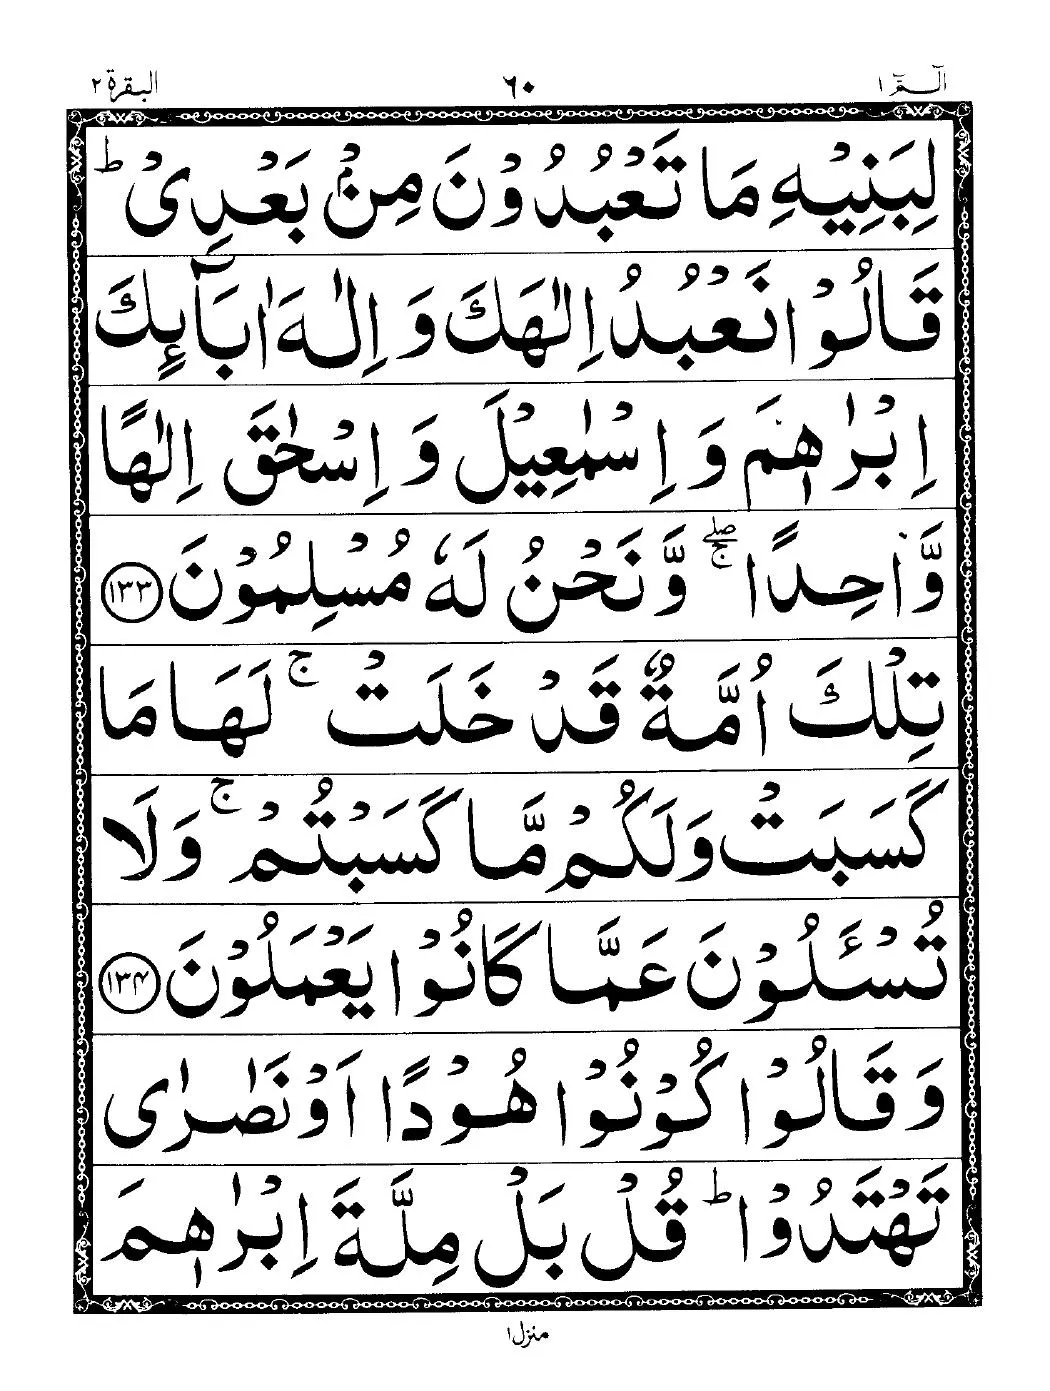 الٓـمّٓ ١ ٦٠ البقرة ٢
لِبَنِيْهِ مَا تَعْبُدُوْنَ مِنْۢ بَعْدِىْ ؕ
قَالُوْا نَعْبُدُ اِلٰهَكَ وَ اِلٰهَ اٰبَآٮِٕكَ
اِبْرٰهٖمَ وَ اِسْمٰعِيْلَ وَ اِسْحٰقَ اِلٰهًا
وَّاحِدًا ۖۚ وَّ نَحْنُ لَهٗ مُسْلِمُوْنَ ﴿١٣٣﴾
تِلْكَ اُمَّةٌ قَدْ خَلَتْ ۚ لَهَا مَا
كَسَبَتْ وَلَكُمْ مَّا كَسَبْتُمْ ۚ وَلَا
تُسْـَٔلُوْنَ عَمَّا كَانُوْا يَعْمَلُوْنَ ﴿١٣٤﴾
وَ قَالُوْا كُوْنُوْا هُوْدًا اَوْ نَصٰرٰى
تَهْتَدُوْا ؕ قُلْ بَلْ مِلَّةَ اِبْرٰهٖمَ
منزل ١